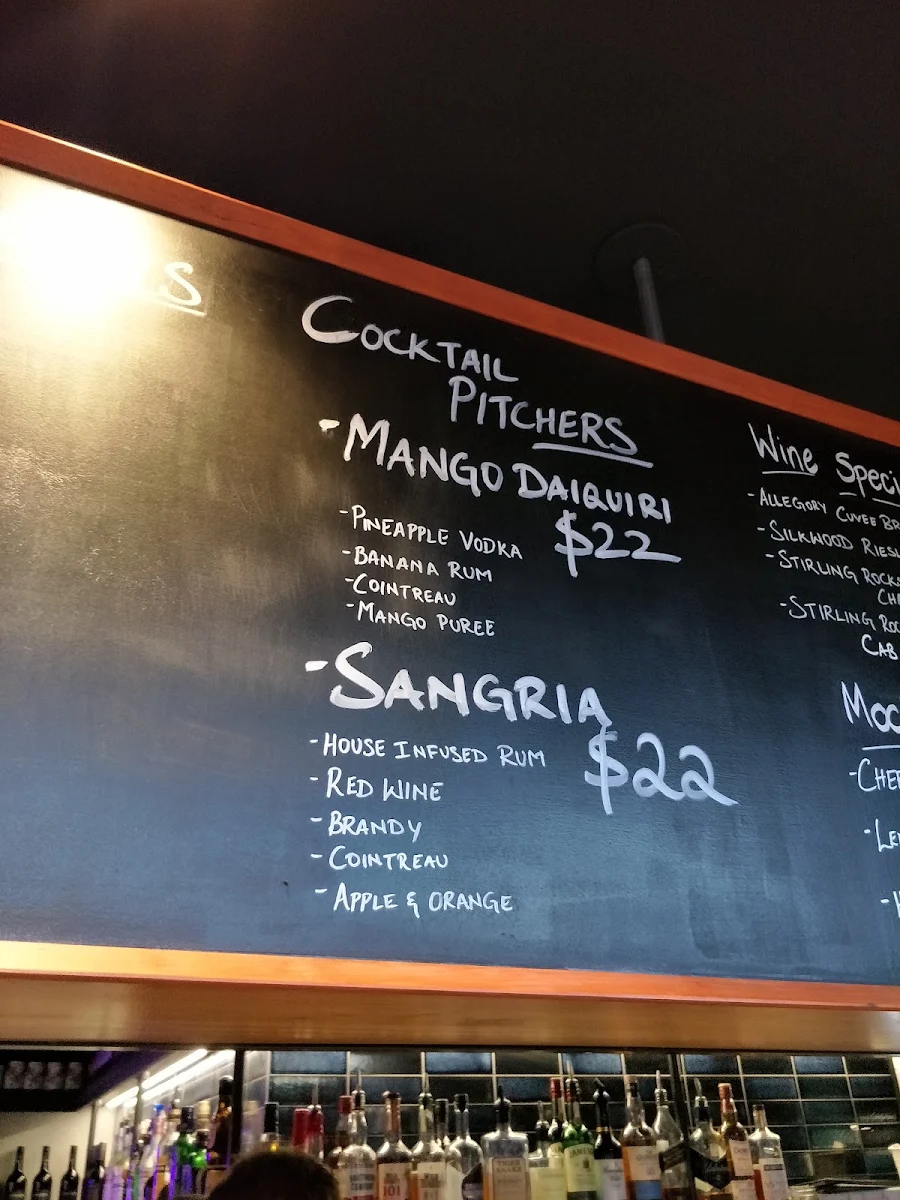 S
COCKTAIL
PITCHERS
-MANGO DAIQUIRI
$22
-PINEAPPLE VODKA
-BANANA RUM
-COINTREAU
-MANGO PUREE
-SANGRIA
$22
-HOUSE INFUSED RUM
-RED WINE
-BRANDY
-COINTREAU
-APPLE & ORANGE
Wine Speci
-ALLEGORY CUVEE BR
-SILKWOOD RIESL
-STIRLING ROCKS
CH
-STIRLING ROC
CAB
Moc
-CHE
-LE
101